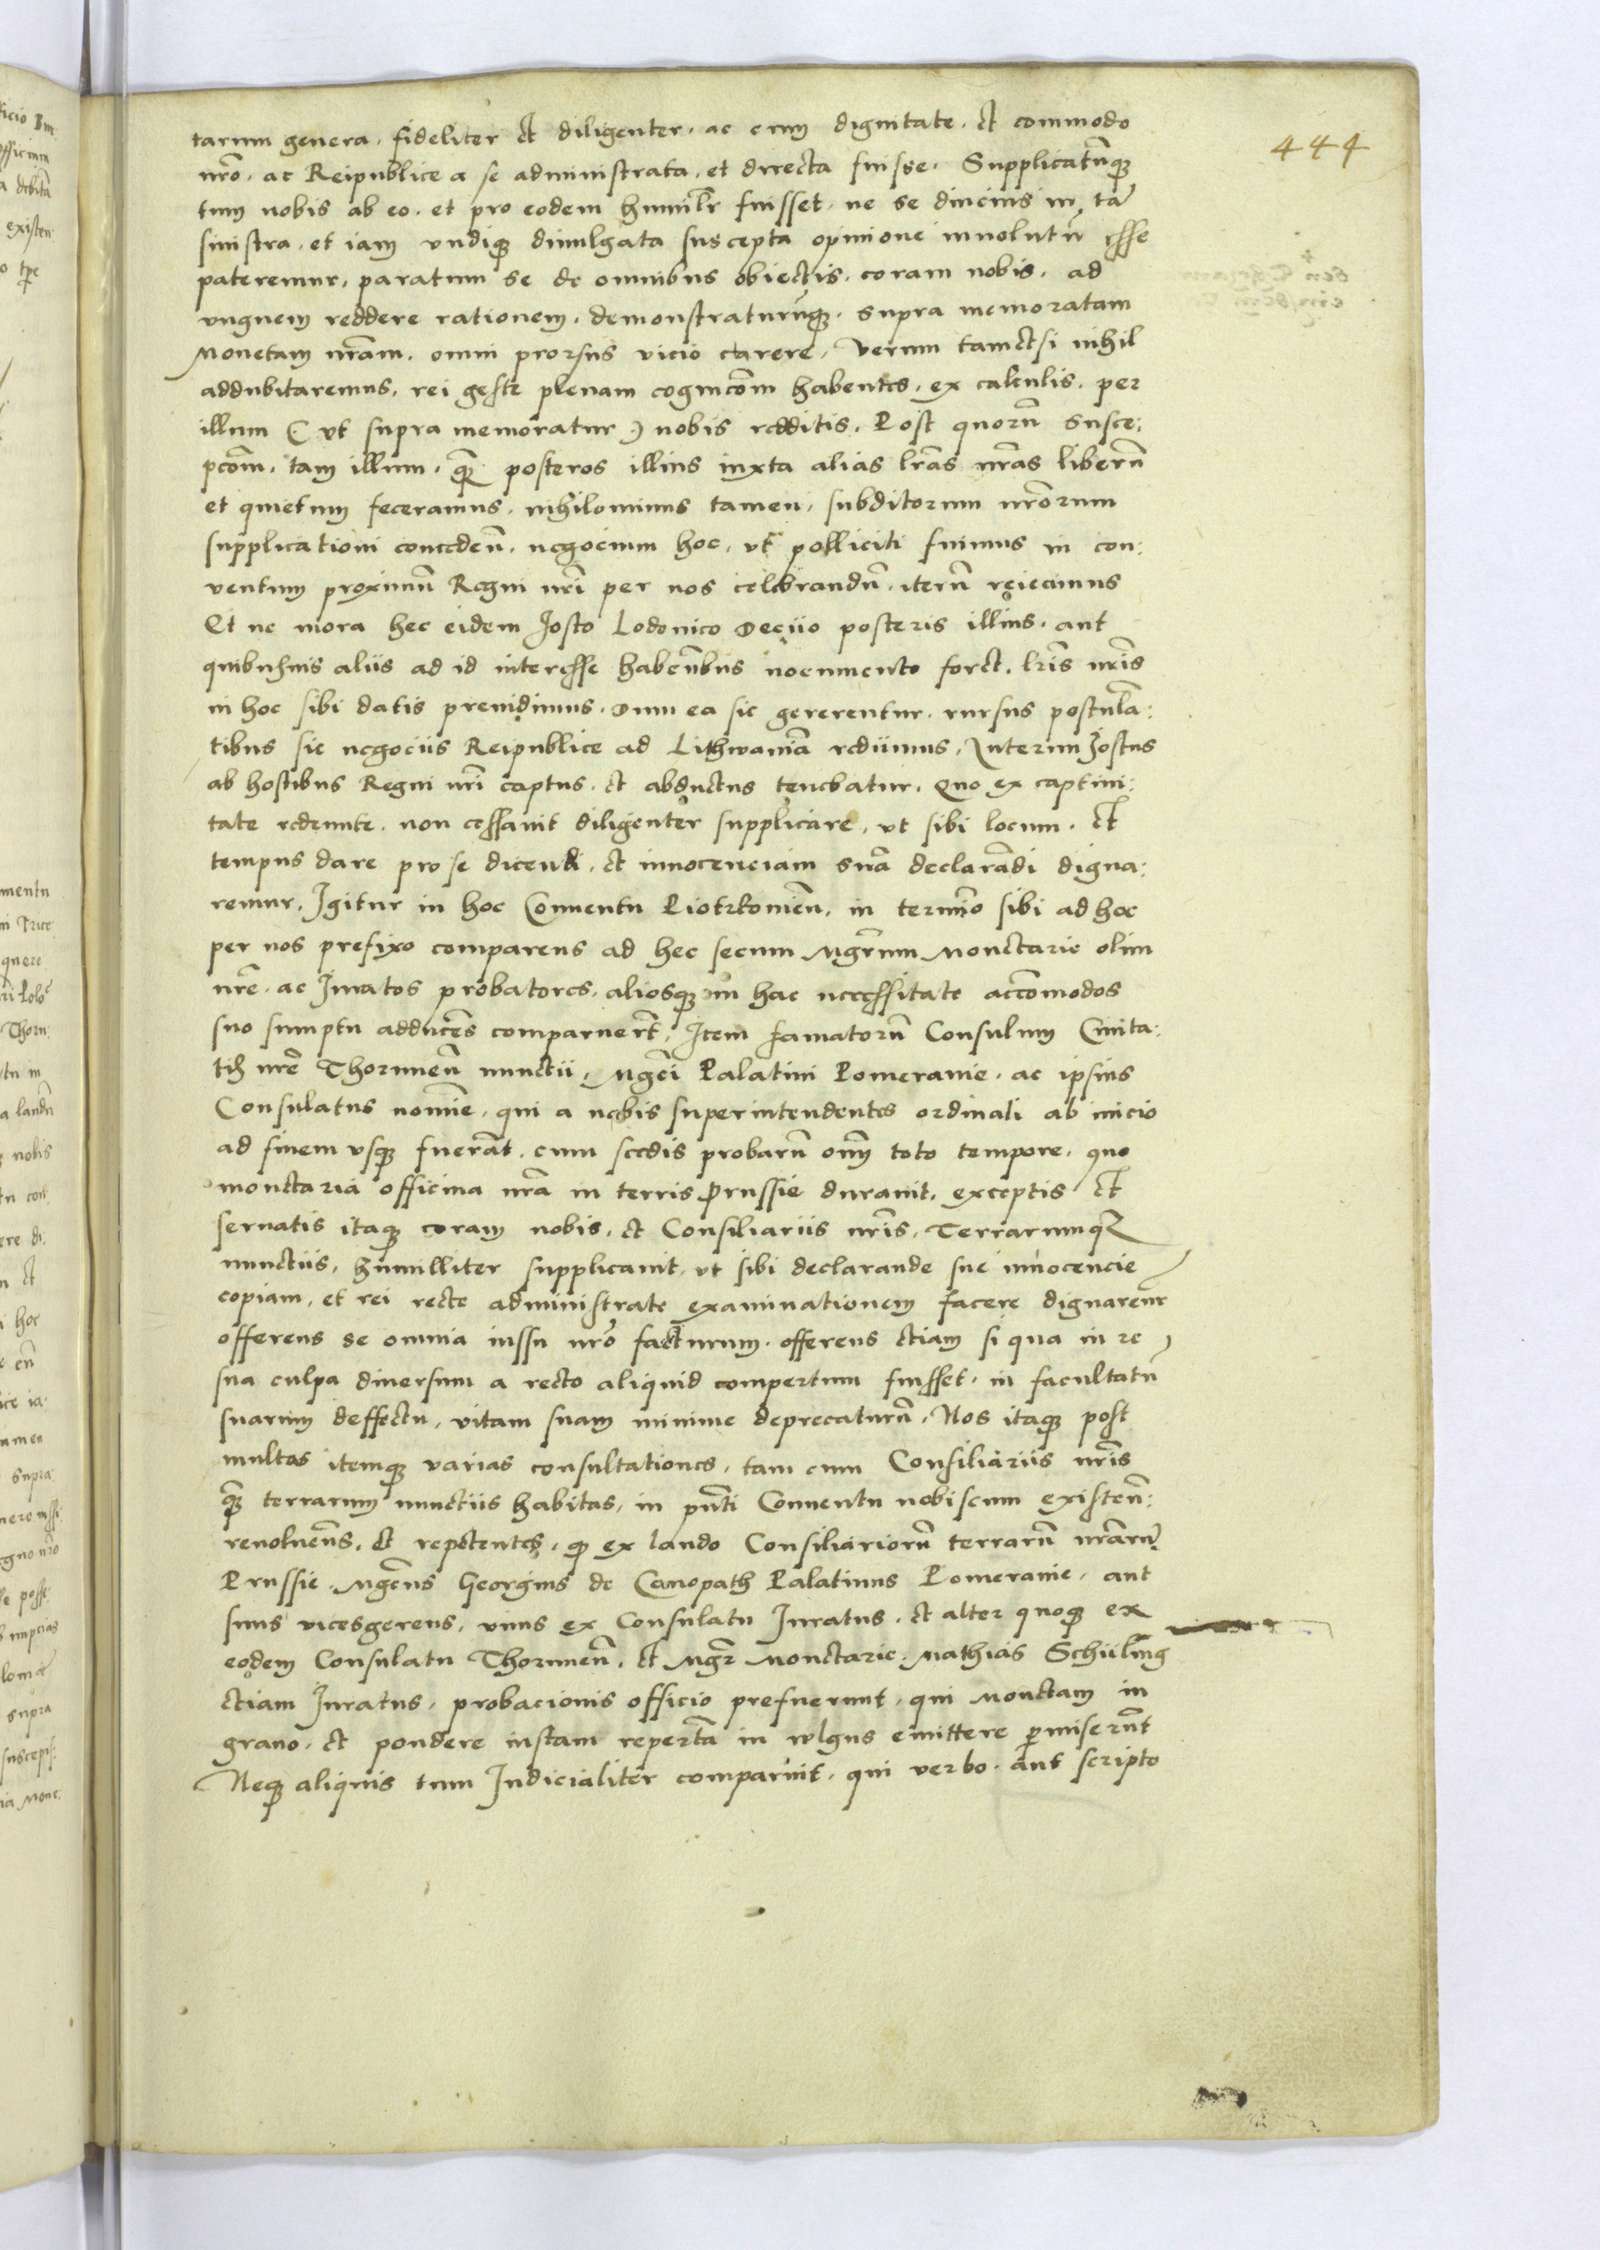 444
tarum genera, fideliter et diligenter, ac cum dignitate, et commodo
nr̃o, ac Reipublice a se administrata, et directa fuisse. Supplicatũqȝ
tum nobis ab eo, et pro eodem humilr̃ fuisset, ne se diucius in tã
sinistra, et iam vndiqȝ diuulgata suscepta opinione inuolutũ esse
pateremur, paratum se de omnibus obiectis, coram nobis, ad
vnguem reddere rationem, demonstraturũqȝ, supra memoratam
Monetam nr̃am, omni prorsus vicio carere, Verum tametsi nihil
addubitaremus, rei geste plenam cognicõm habentes, ex calculis, per
illum (vt supra memoratur) nobis redditis, Post quorũ susce:
pcõm, tam illum, qȝ posteros illius iuxta alias lr̃as nr̃as liberũ
et quietum feceramus, nihilominus tamen, subditorum nr̃orum
supplicationi conceden̄, negocium hoc, vt polliciti fuimus in con:
ventum proximũ Regni nr̃i per nos celebrandũ, iterũ reiecimus
Et ne mora hec eidem Josto Lodouico Decijo posteris illius, aut
quibusuis aliis ad id interesse haben̄bus nocumento foret, lr̃is nr̃is
in hoc sibi datis preuidimus, Dum ea sic gererentur, rursus postulã:
tibus sic negociis Reipublice ad Lithwaniã rediimus, Interim Jostus
ab hostibus Regni nr̃i captus, et abductus tenebatur, Quo ex captiui:
tate redeunte, non cessauit diligenter supplicare, vt sibi locum, et
tempus dare pro se dicendi, et innocenciam suã declarãdi digna:
remur, Igitur in hoc Conuentu Piotrkouien̄, in termino sibi ad hoc
per nos prefixo comparens ad hec secum Mgr̃um Monetarie olim
nr̃e, ac Juratos probatores, aliosqȝ in hac necessitate accõmodos
suo sumptu adducẽs comparuer̃t, Item famatorũ Consulum Ciuita:
tis nr̃e Thorunien̄ nunctii, Mgci Palatini Pomeranie, ac ipsius
Consulatus nomĩe, qui a nobis superintendentes ordinati ab inicio
ad finem vsqȝ fuerãt, cum scedis probarũ om̄ toto tempore, quo
monetaria officina nr̃a in terris Prussie durauit, exceptis et
seruatis itaqȝ coram nobis, et Consiliariis nr̃is, Terrarumqȝ
nunctiis, humilliter supplicauit, vt sibi declarande sue innocencie
copiam, et rei recte administrate examinationem facere dignarem̃r
offerens se omnia iussu nr̃o facturum, offerens etiam si qua in re
sua culpa diuersum a recto aliquid compertum fuisset, in facultatũ
suarum deffectu, vitam suam minime deprecaturũ, Nos itaqȝ post
multas itemqȝ varias consultationes, tam cum Consiliariis nr̃is
qȝ terrarum nunctiis habitas, in pn̄ti Conuentu nobiscum existen̄:
reuoluen̄s, et repetentes, qȝ ex laudo Consiliariorũ terrarũ nr̃arũ
Prussie, Mgcũs Georgius de Canopath Palatinus Pomeranie, aut
suus vicesgerens, vnus ex Consulatu Juratus, et alter quoqȝ ex
eodem Consulatu Thorunien̄, et Mgr̃ Monetarie, Mathias Schiling
etiam Juratus, probacionis officio prefuerunt, qui Monetam in
grano, et pondere iustam repertã in wlgus emittere p̱miserũt
Neqȝ aliquis tum Judicialiter comparuit, qui verbo, aut scripto